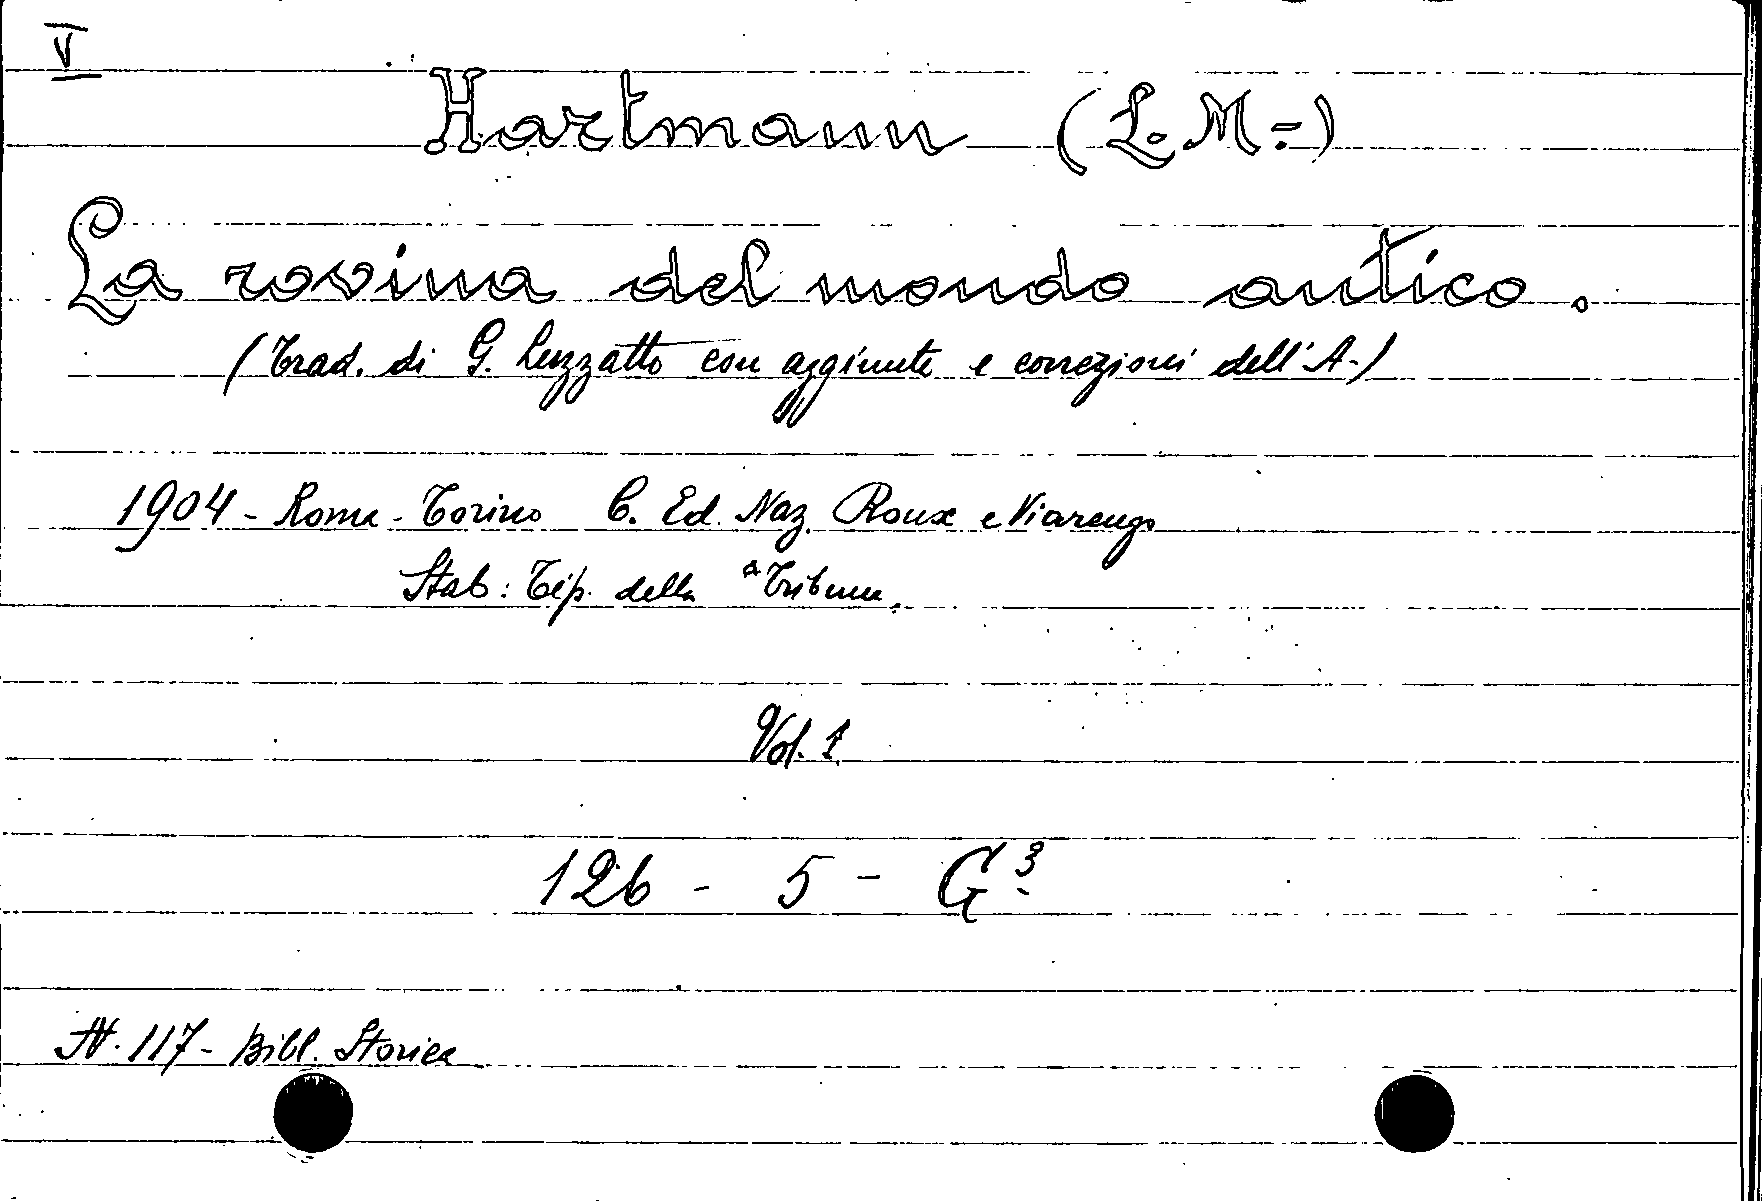 V
Hartmann (L. M.=)
La rovina del mondo antico.
(Trad. di G. Luzzatto con aggiunte e correzioni dell'A.)
1904 - Roma - Torino C. Ed. Naz. Roux e Viarengo
Stab: Tip. della "Tribuna.
Vol. 1.
126 - 5 - G³.
N. 117 - Bibl. Storica